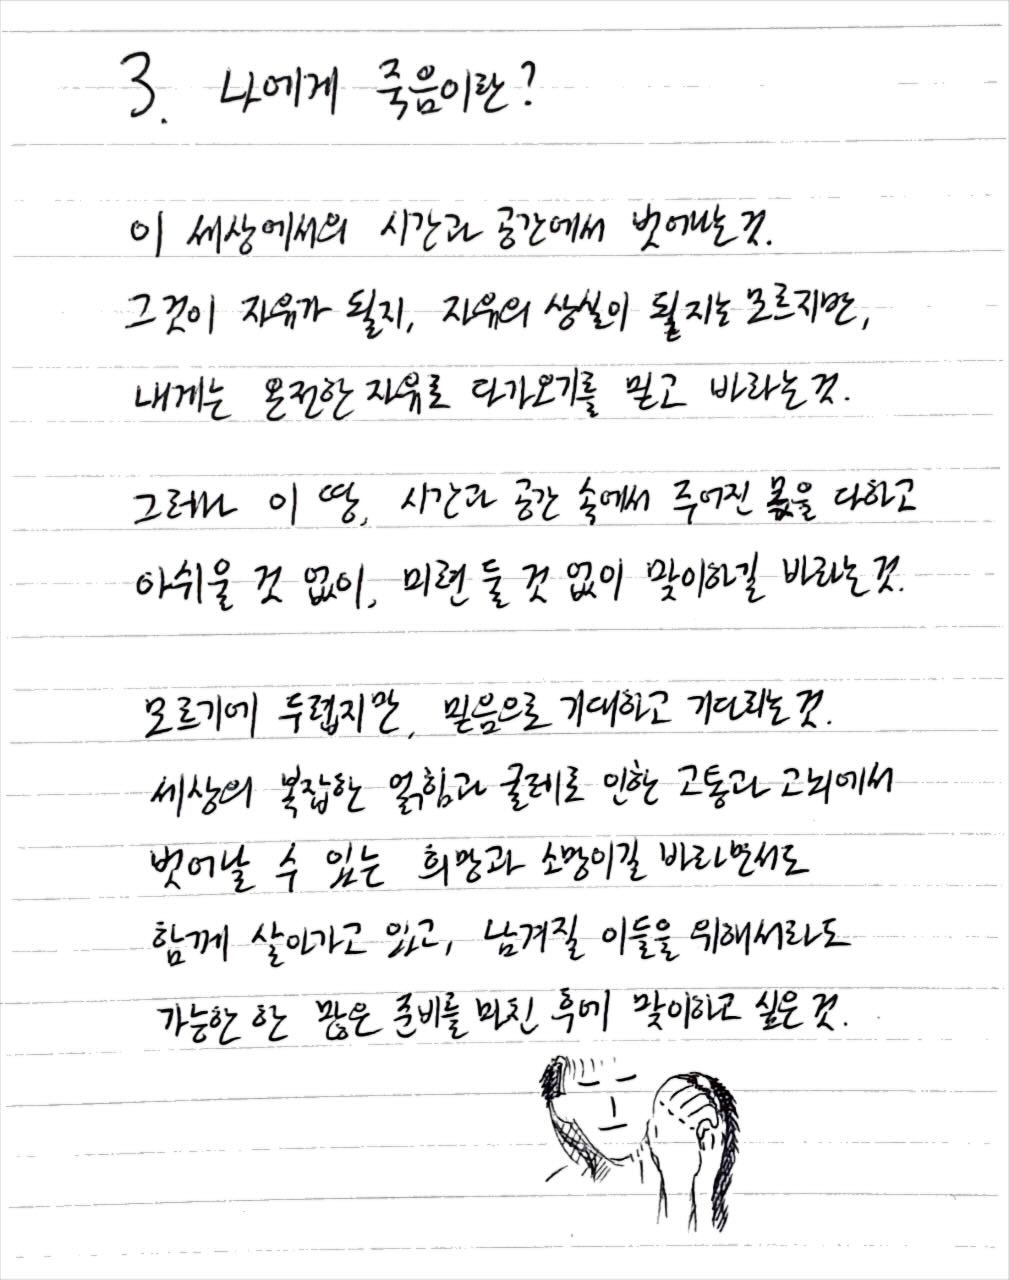 3. 나에게 죽음이란?
이 세상에서의 시간과 공간에서 벗어나는 것.
그것이 자유가 될지, 자유의 상실이 될지는 모르지만,
내게는 온전한 자유로 다가오기를 믿고 바라는 것.
그러나 이 땅, 시간과 공간 속에서 주어진 몫을 다하고
아쉬울 것 없이, 미련 둘 것 없이 맞이하길 바라는 것.
모르기에 두렵지만, 믿음으로 기대하고 기다리는 것.
세상의 복잡한 얽힘과 굴레로 인한 고통과 고뇌에서
벗어날 수 있는 희망과 소망이길 바라면서도
함께 살아가고 있고, 남겨질 이들을 위해서라도
가능한 한 많은 준비를 마친 후에 맞이하고 싶은 것.